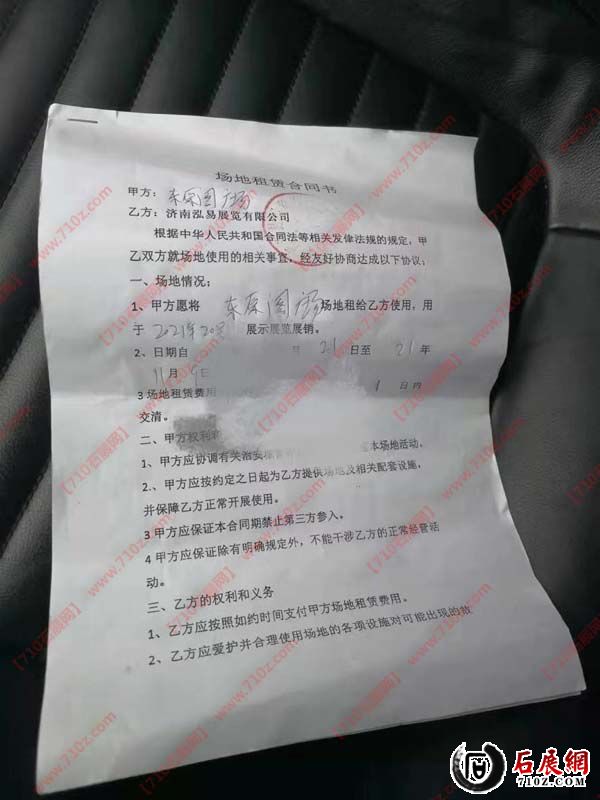 场地租赁合同书
甲方：东原阁广场
乙方：济南泓易展览有限公司
根据中华人民共和国合同法等相关发律法规的规定，甲
乙双方就场地使用的相关事宜，经友好协商达成以下协议：
一、场地情况：
1、甲方愿将 东原阁广场 场地租给乙方使用，用
于 2021年 展示展览展销。
2、日期自 21 日至 21 年
11月 日
3 场地租赁费用 1 日内
交清。
二、甲方权利
1、甲方应协调有关治安 本场地活动。
2、、甲方应按约定之日起为乙方提供场地及相关配套设施，
并保障乙方正常开展使用。
3 甲方应保证本合同期禁止第三方参入。
4 甲方应保证除有明确规定外，不能干涉乙方的正常经管活
动。
三、乙方的权利和义务
1、乙方应按照如约时间支付甲方场地租赁费用。
2、乙方应爱护并合理使用场地的各项设施对可能出现的故
【710石展网】www.710z.com
石展網
710Z.COM